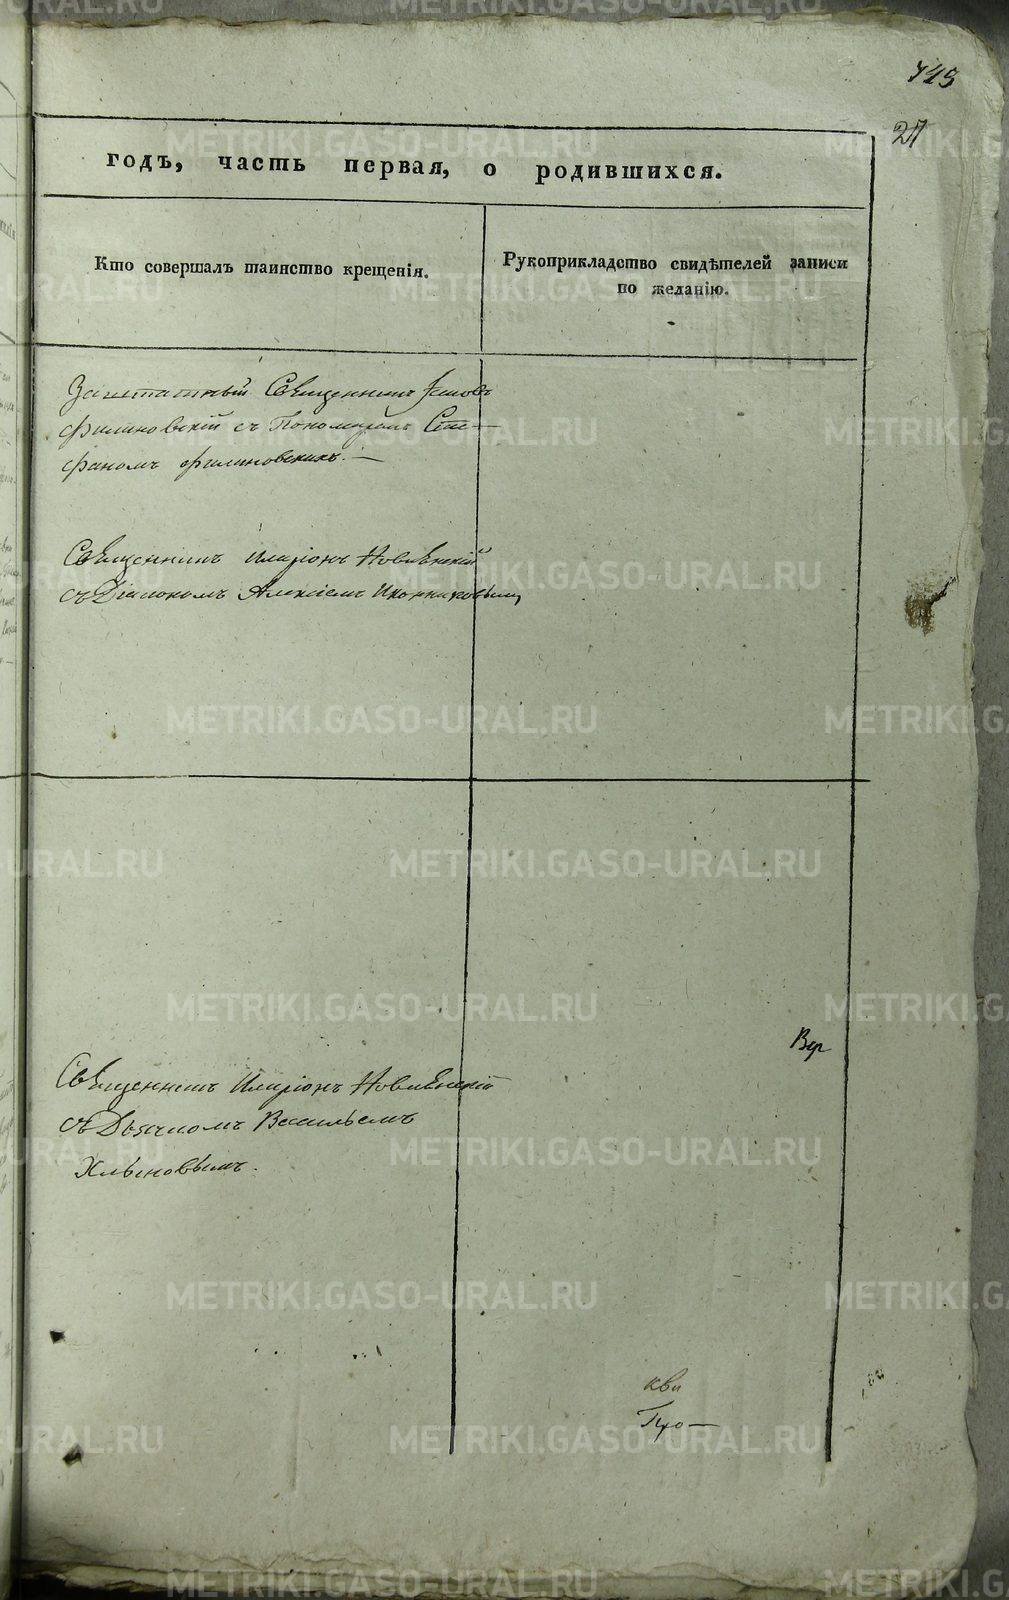 743
27
годъ, часть первая, о родившихся.
Кто совершалъ таинство крещенія.
Рукоприкладство свидѣтелей записи
по желанію.
Заштатный Священникъ Іаковъ
Филиновскій съ Пономаремъ Сте-
фаномъ Филиновскимъ.
Священникъ Иларіонъ
съ Діакономъ Алексіемъ Иконниковымъ
Священникъ Иларіонъ
съ Дьячкомъ Васильемъ
Хлыновымъ.
METRIKI.GASO-URAL.RU